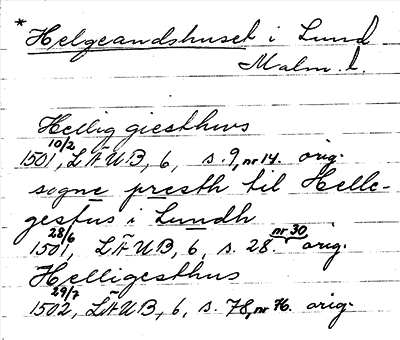 * Helgeandshuset i Lund
Malm. l.
Hellig giesthws
10/2
1501, LÄUB, 6, s. 9, nr 14. orig.
sogne presth til Helle-
gestus i Lundh
28/6 nr 30
1501, LÄUB, 6, s. 28. orig.
Helligesthus
29/7
1502, LÄUB, 6, s. 78, nr 76. orig.